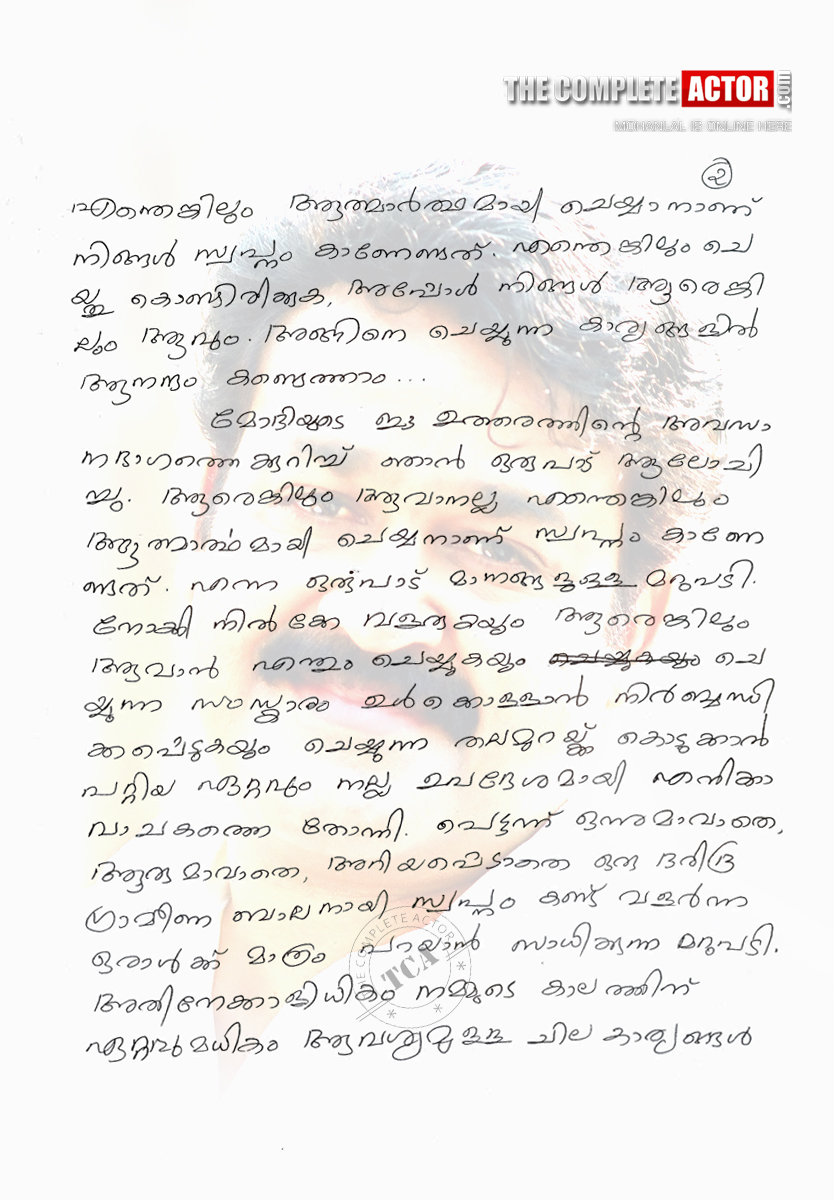 THE COMPLETE ACTOR .com
MOHANLAL IS ONLINE HERE
൨
എന്തെങ്കിലും ആത്മാർത്ഥമായി ചെയ്യാനാണ്
നിങ്ങൾ സ്വപ്നം കാണേണ്ടത്. എന്തെങ്കിലും ചെ
യ്തു കൊണ്ടിരിക്കുക, അപ്പോൾ നിങ്ങൾ ആരെങ്കി
ലും ആവും. അങ്ങിനെ ചെയ്യുന്ന കാര്യങ്ങളിൽ
ആനന്ദം കണ്ടെത്താം ...
മോദിയുടെ ഈ ഉത്തരത്തിന്റെ അവസാ
നഭാഗത്തെക്കുറിച്ച് ഞാൻ ഒരുപാട് ആലോചി
ച്ചു. ആരെങ്കിലും ആവാനല്ല എന്തെങ്കിലും
ആത്മാർത്ഥമായി ചെയ്യനാണ് സ്വപ്നം കാണേ
ണ്ടത്. എന്ന ഒരുപാട് മാനങ്ങളുള്ള മറുപടി.
നോക്കി നിൽക്കേ വളരുകയും ആരെങ്കിലും
ആവാൻ എന്തും ചെയ്യുകയും ചെയ്യുകയും ചെ
യ്യുന്ന സംസ്ക്കാരം ഉൾക്കൊള്ളാൻ നിർബ്ബന്ധി
ക്കപ്പെടുകയും ചെയ്യുന്ന തലമുറയ്ക്ക് കൊടുക്കാൻ
പറ്റിയ ഏറ്റവും നല്ല ഉപദേശമായി എനിക്കാ
വാചകത്തെ തോന്നി. പെട്ടന്ന് ഒന്നുമാവാതെ,
ആരുമാവാതെ, അറിയപ്പെടാതെ ഒരു ദരിദ്ര
ഗ്രാമീണ ബാലനായി സ്വപ്നം കണ്ട് വളർന്ന
ഒരാൾക്ക് മാത്രം പറയാൻ സാധിക്കുന്ന മറുപടി.
അതിനേക്കാളിധികം നമ്മുടെ കാലത്തിന്
ഏറ്റവുമധികം ആവശ്യമുള്ള ചില കാര്യങ്ങൾ
THE COMPLETE ACTOR
TCA